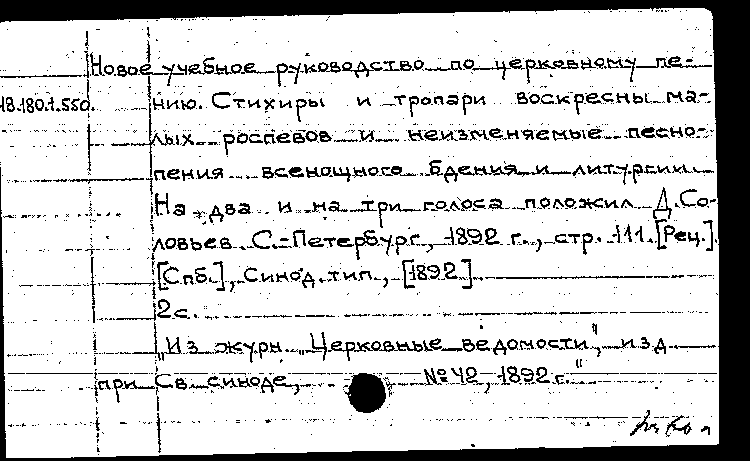 Новое учебное руководство по церковному пе-
18.180.1.550. нию. Стихиры и тропари воскресны ма-
лых роспевов и неизменяемые песно-
пения всенощного бдения и литургии.
На два и на три голоса положил Д. Со-
ловьев. С.-Петербург, 1892 г., стр. 111. [Рец.].
[Спб.], Синод. тип., [1892].
2 с.
„Из журн. „Церковные ведомости", изд.
при Св. синоде, № 42, 1892 г."